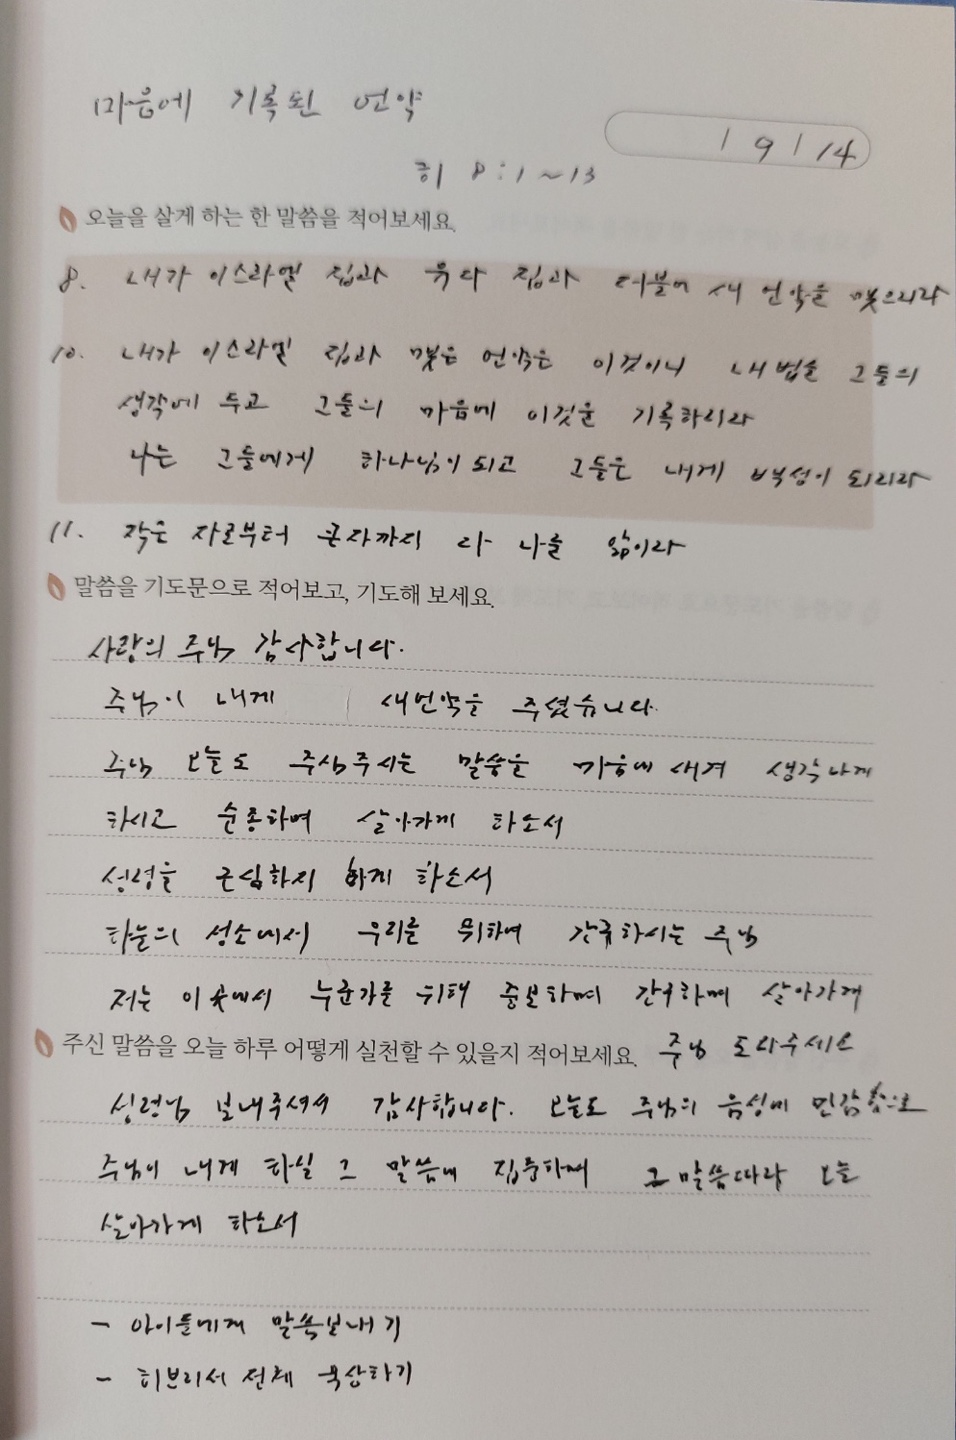 마음에 기록된 언약
1 9 1 14
히 8:1~13
오늘을 살게 하는 한 말씀을 적어보세요.
8. 내가 이스라엘 집과 유다 집과 더불어 새 언약을 맺으리라
10. 내가 이스라엘 집과 맺은 언약은 이것이니 내 법을 그들의
생각에 두고 그들의 마음에 이것을 기록하리라
나는 그들에게 하나님이 되고 그들은 내게 백성이 되리라
11. 작은 자로부터 큰자까지 다 나를 앎이라
말씀을 기도문으로 적어보고, 기도해 보세요.
사랑의 주님 감사합니다.
주님이 내게 새언약을 주셨습니다.
주님 오늘도 주심주시는 말씀을 마음에 새겨 생각나게
하시고 순종하며 살아가게 하소서
성령을 근심하지 하게 하소서
하늘의 성소에서 우리를 위하여 간구하시는 주님
저는 이 곳에서 누군가를 위해 중보하며 간구하며 살아가게
주님 도와주세요
주신 말씀을 오늘 하루 어떻게 실천할 수 있을지 적어보세요.
성령님 보내주셔서 감사합니다. 오늘도 주님의 음성에 민감함으로
주님이 내게 하실 그 말씀에 집중하며 그 말씀따라 오늘
살아가게 하소서
- 아이들에게 말씀보내기
- 히브리서 전체 묵상하기